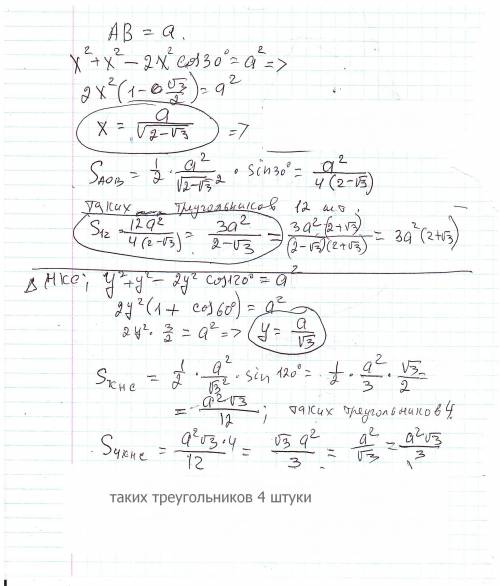 AB = a.
x² + x² − 2x² cos30° = a² =>
2x²(1 − √3/2) = a²
x = a/√(2−√3) =>
S_AOB = 1/2 · a²/√(2−√3)² · sin30° = a²/4(2−√3)
таких треугольников 12 шт.
S₁₂ = 12a²/4(2−√3) = 3a²/2−√3 = 3a²(2+√3)/(2−√3)(2+√3) = 3a²(2+√3)
Δ НКС; y² + y² − 2y² cos120° = a²
2y²(1 + cos60°) = a²
2y² · 3/2 = a² => y = a/√3
S_КНС = 1/2 · a²/√3² · sin 120° = 1/2 · a²/3 · √3/2
= a²√3/12; таких треугольников 4.
S_4КНС = a²√3·4/12 = √3 a²/3 = a²/√3 = a²√3/3
таких треугольников 4 штуки